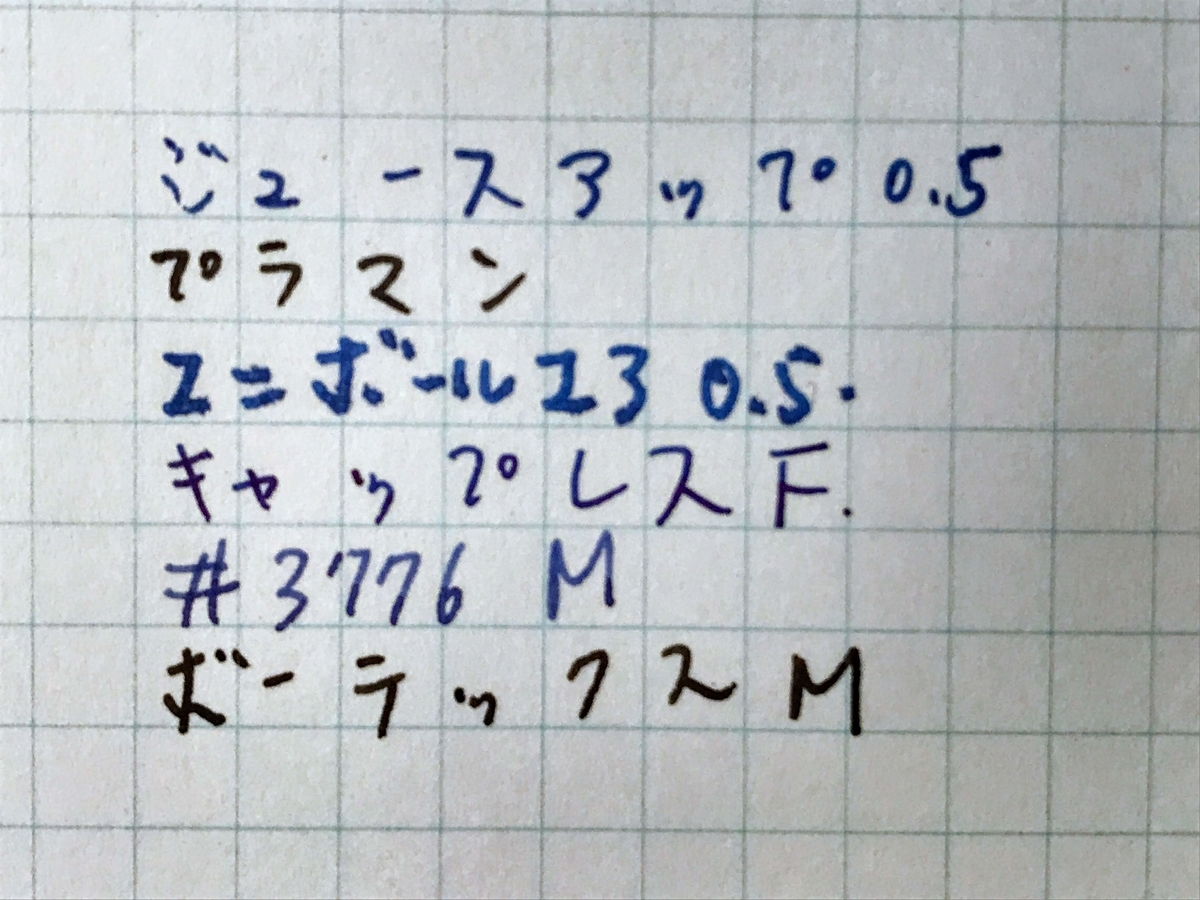 ジュースアップ 0.5
プラマン
ユニボールエア 0.5.
キャップレス F.
#3776 M
ボーテックス M